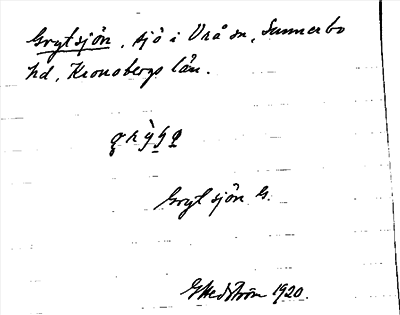 Grytsjön, sjö i Vrå sn, Sunnerbo
hd, Kronobergs län.
Grytsjön G.
G Hedström 1920.